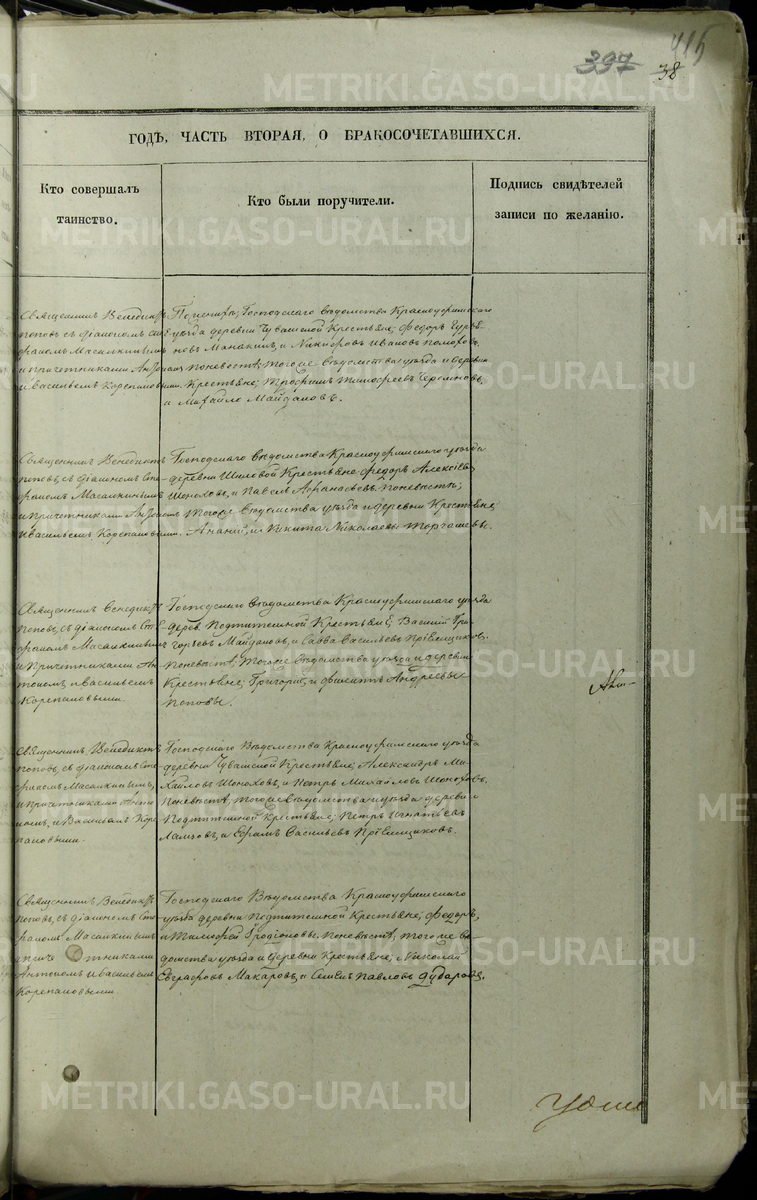 415
397
38
ГОДѢ, ЧАСТЬ ВТОРАЯ, О БРАКОСОЧЕТАВШИХСЯ.
Кто совершалъ
таинство.
Кто были поручители.
Подпись свидѣтелей
записи по желанію.
Священникъ Венедиктъ
Поповъ съ діакономъ Сте-
фаномъ Масалкинымъ
и причетниками Антономъ
и Васильемъ Корепановыми.
По женихѣ; Господскаго вѣдомства Красноуфимскаго
уѣзда деревни Чувашской Крестьяне; Федоръ
Манакинъ, и Никифоръ Ивановъ
По невѣстѣ; того же вѣдомства уѣзда и деревни
Крестьяне; Трофимъ Тимофеевъ
и Михайло Майдановъ.
Священникъ Венедиктъ
Поповъ, съ діакономъ Сте-
фаномъ Масалкинымъ
и причетниками Антономъ
и Васильемъ Корепановыми.
Господскаго вѣдомства Красноуфимскаго уѣзда
деревни Шиловой Крестьяне Федоръ Алексѣевъ
Шоноховъ, и Павелъ Афанасьевъ. По невѣстѣ;
того же вѣдомства уѣзда и деревни Крестьяне;
Ананій, и Никита Николаевы Торгашевы.
Священникъ Венедиктъ
Поповъ, съ діакономъ Сте-
фаномъ Масалкинымъ
и причетниками Ан-
тономъ и Васильемъ
Корепановыми.
Господскаго вѣдомства Красноуфимскаго уѣзда
дерев. Подтишенной Крестьяне; Василій Гри-
горьевъ Майдановъ, и Савва Васильевъ Пріемщиковъ.
По невѣстѣ; того же вѣдомства уѣзда и деревни
Крестьяне; Григорій, и Филиппъ Андреевы
Поповы.
Священникъ Венедиктъ
Поповъ, съ діакономъ Сте-
фаномъ Масалкинымъ,
и причетниками Анто-
номъ, и Васильемъ Коре-
пановыми.
Господскаго Вѣдомства Красноуфимскаго уѣзда
деревни Чувашской Крестьяне; Александръ Ми-
хайловъ Шоноховъ, и Петръ Михайловъ Шоноховъ,
По невѣстѣ; того же вѣдомства и уѣзда деревни
Подтишенной Крестьяне; Петръ Игнатьевъ
и Ефимъ Васильевъ Пріемщиковъ.
Священникъ Венедиктъ
Поповъ, съ діакономъ Сте-
фаномъ Масалкинымъ
и причетниками
Антономъ и Васильемъ
Корепановыми
Господскаго Вѣдомства Красноуфимскаго
уѣзда деревни Подтишенной Крестьяне; Федоръ,
и Тимофей Родіоновы. По невѣстѣ, того же вѣ-
домства уѣзда и деревни Крестьяне; Николай
Евграфовъ Макаровъ, и Семенъ Павловъ Дударовъ.
METRIKI.GASO-URAL.RU
METRIKI.GASO-URAL.RU
METRIKI.GASO-URAL.RU
METRIKI.GASO-URAL.RU
METRIKI.GASO-URAL.RU
METRIKI.GASO-URAL.RU
METRIKI.GASO-URAL.RU
METRIKI.GASO-URAL.RU